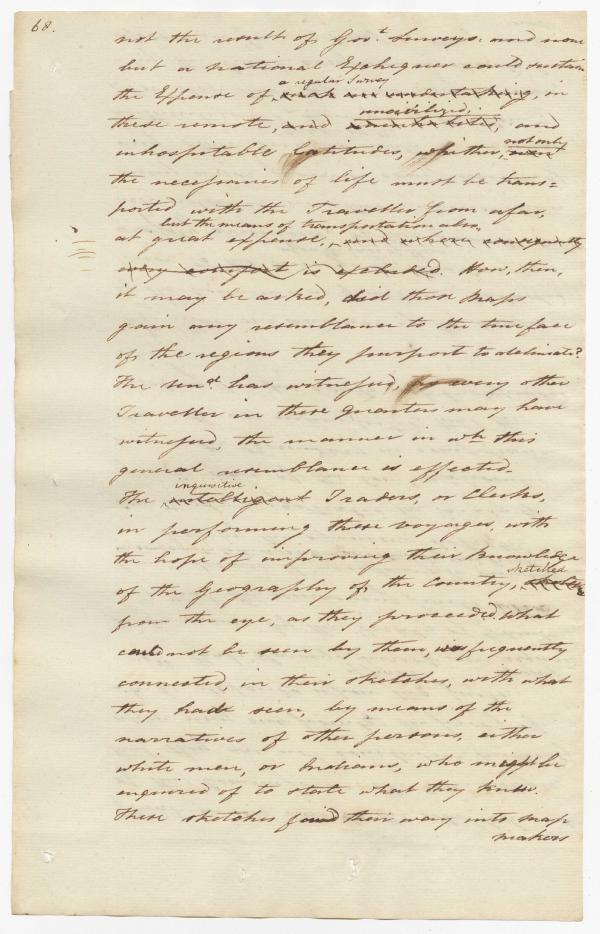 68.
not the result of Gov.t Surveys: and none
but a national Exchequer could sustain
a regular Survey
the Expense of, such an undertaking, in
uncivilized,
these remote, and, and
not only
inhospitable latitudes, whither,
the necessaries of life must be trans=
ported with the Traveller from afar,
but the means of transportation also,
at great expense, and where consequently
every comfort is excluded. How, then,
it may be asked, did those Maps
gain any resemblance to the true face
of the regions they purport to delineate?
The has witnessed, as every other
Traveller in these quarters may have
witnessed, the manner in wh. this
general resemblance is effected.
inquisitive
The intelligent Traders, or Clerks,
in performing these voyages, with
the hope of improving their knowledge
sketched
of the Geography of the Country,
from the eye, as they proceeded, what
could not be seen by them, was frequently
connected, in their sketches, with what
they had seen, by means of the
narratives of other persons, either
white men, or Indians, who might be
enquired of to state what they knew.
These sketches found their way into map
makers